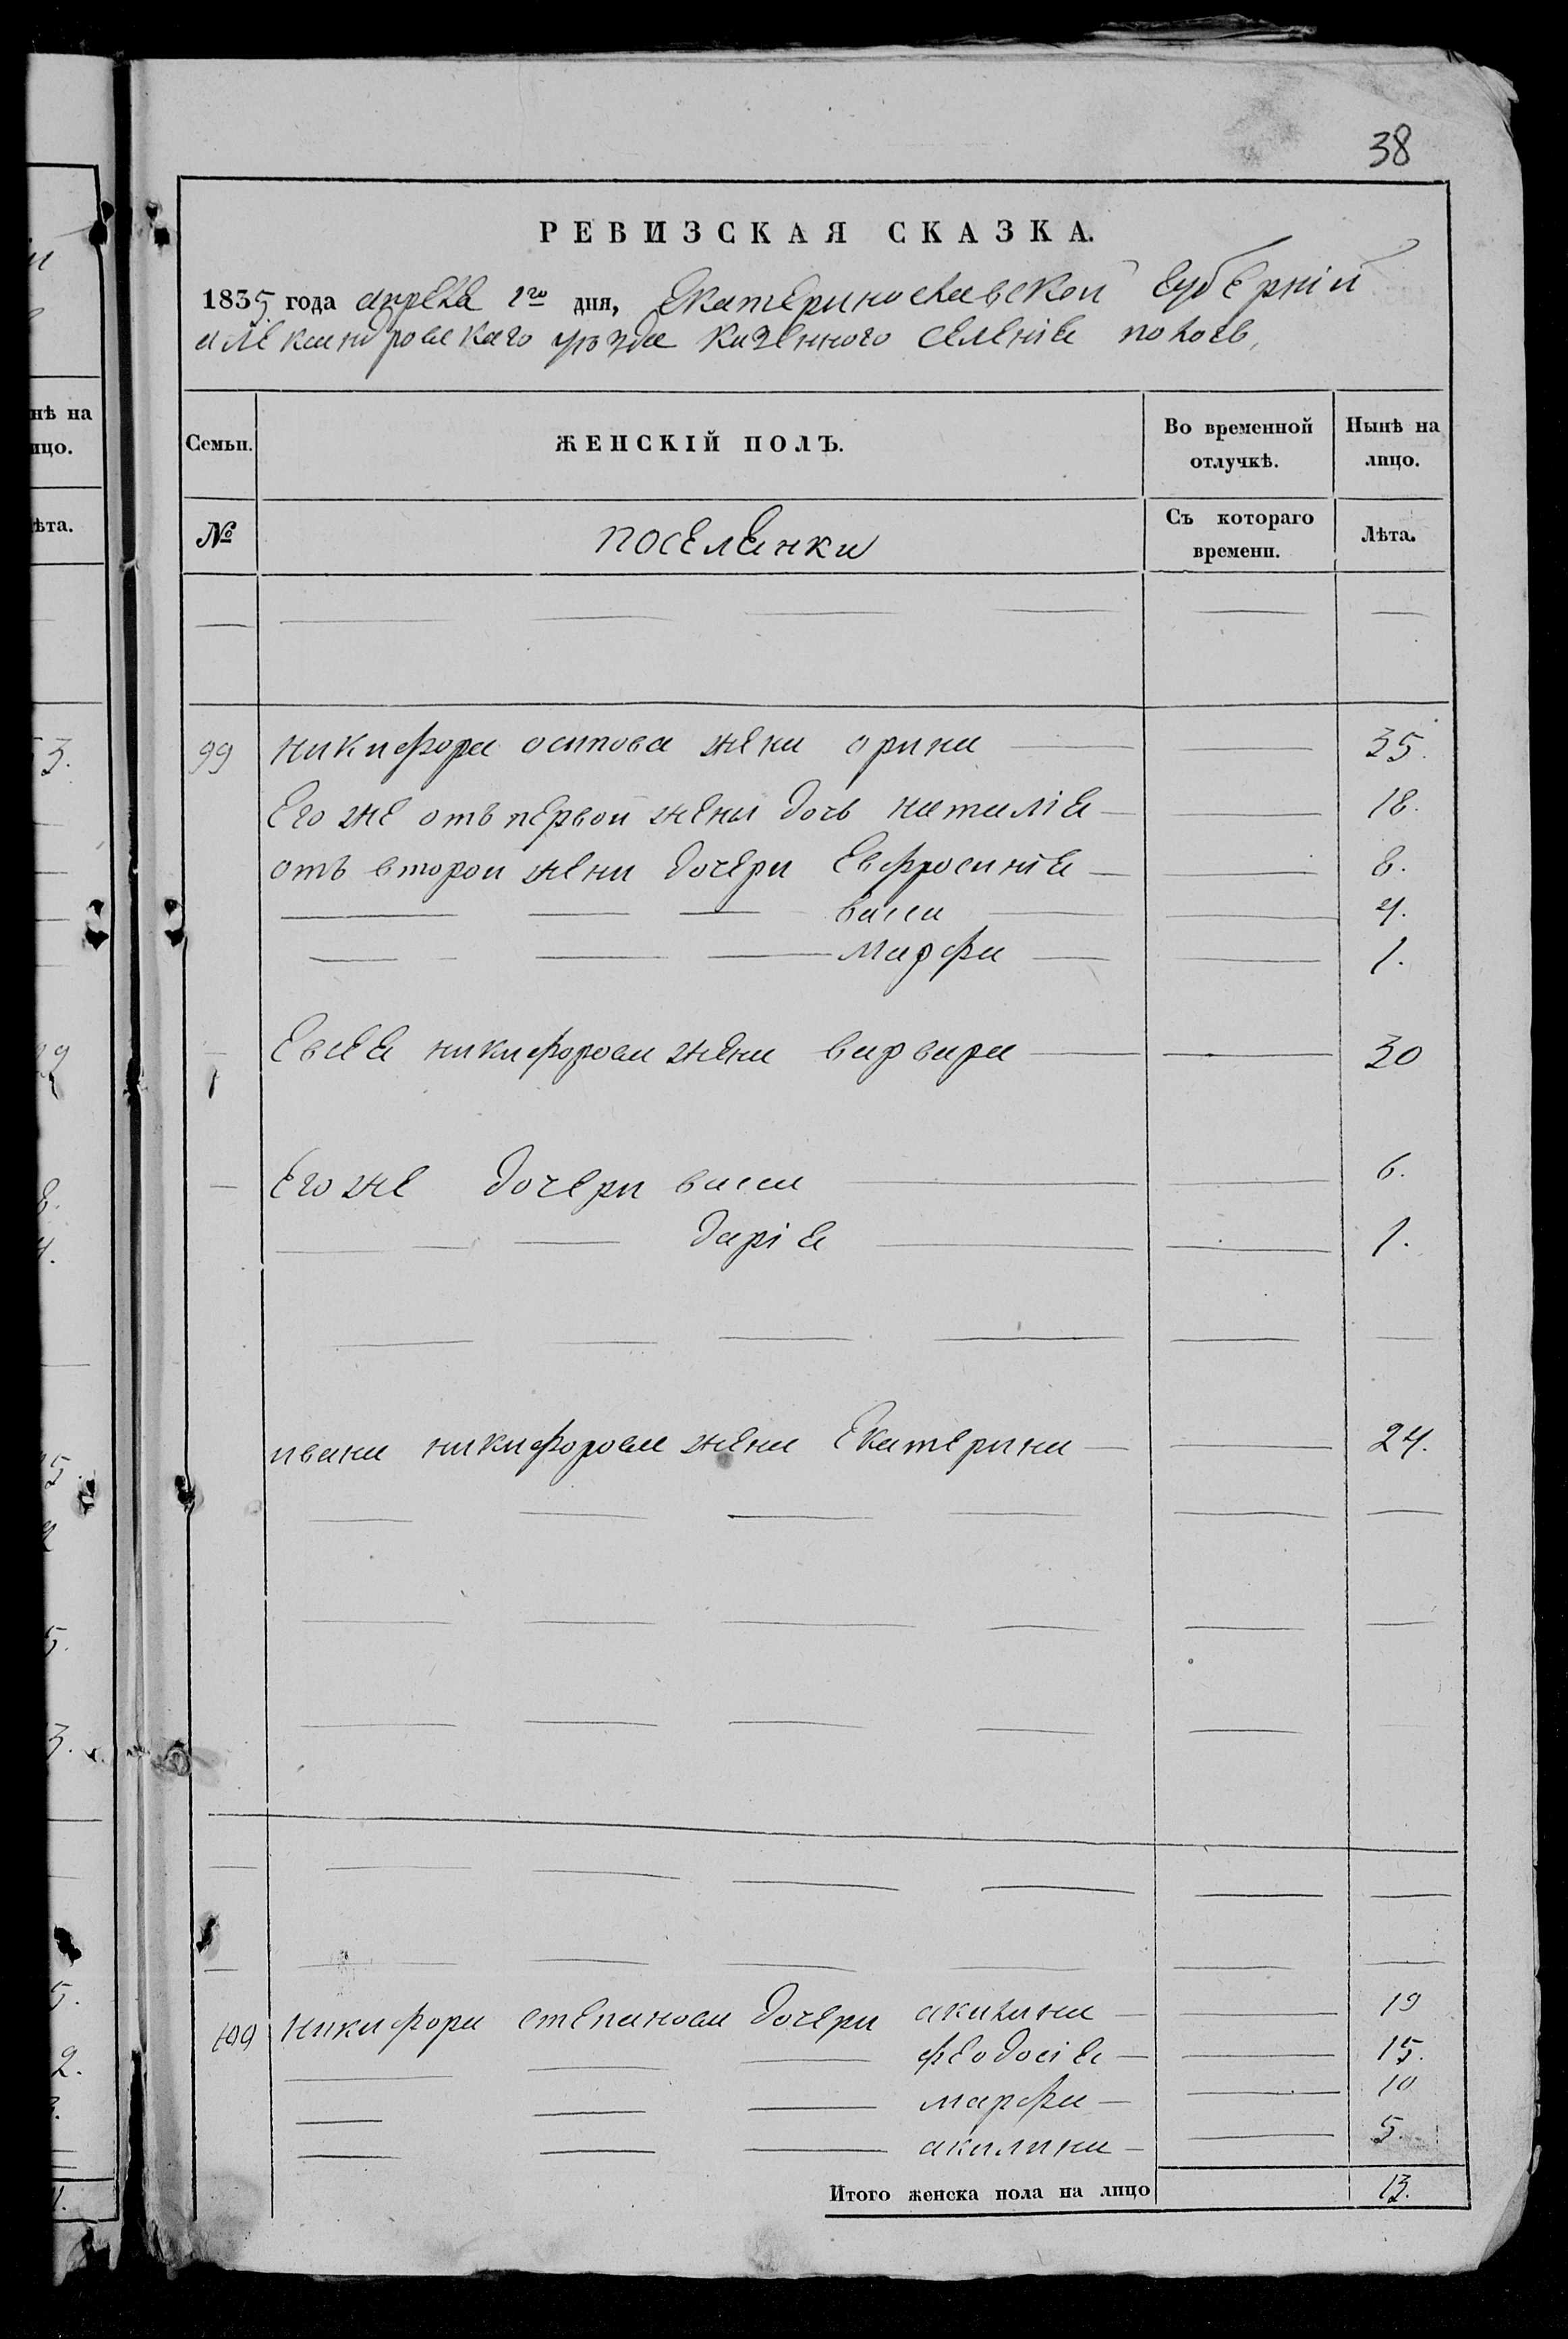 38
РЕВИЗСКАЯ СКАЗКА.
1835 года апреля 1го дня, Екатеринославской губернїи
александровскаго уѣзда казенного селенїя пологъ,
Семьи. ЖЕНСКІЙ ПОЛЪ. Во временной отлучкѣ. Нынѣ на лицо.
№ поселянки Съ котораго времени. Лѣта.
99 никифора осипова жена орина 35.
Его же отъ первой жены дочь наталія 18.
отъ второй жени дочери Евфросинія 8.
васса 4.
марфа 1.
Евсея никифорова жена варвара 30
Его же дочери васса 6.
дарія 1.
ивана никифорова жена Екатерина 24.
100 никифора степанова дочери акилина 19
феодосія 15.
марфа 10
акилина 5.
Итого женска пола на лицо 13.
нѣ на
ицо.
ѣта.
3.